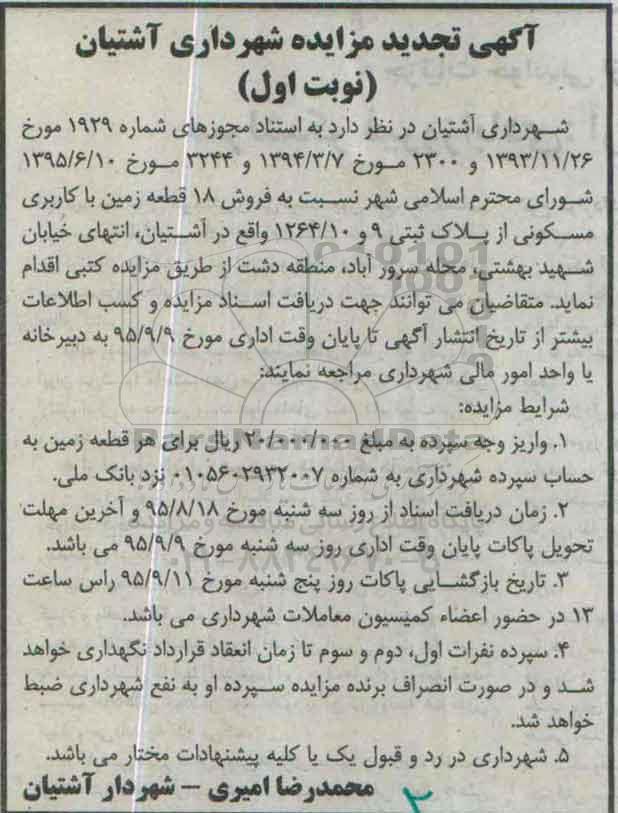 آگهی تجدید مزایده شهرداری آشتیان
(نوبت اول)
شهرداری آشتیان در نظر دارد به استناد مجوزهای شماره ۱۹۲۹ مورخ
۱۳۹۳/۱۱/۲۶ و ۲۳۰۰ مورخ ۱۳۹۴/۳/۷ و ۳۲۴۴ مورخ ۱۳۹۵/۶/۱۰
شورای محترم اسلامی شهر نسبت به فروش ۱۸ قطعه زمین با کاربری
مسکونی از پلاک ثبتی ۹ و ۱۲۶۴/۱۰ واقع در آشتیان، انتهای خیابان
شهید بهشتی، محله سرور آباد، منطقه دشت از طریق مزایده کتبی اقدام
نماید. متقاضیان می توانند جهت دریافت اسناد مزایده و کسب اطلاعات
بیشتر از تاریخ انتشار آگهی تا پایان وقت اداری مورخ ۹۵/۹/۹ به دبیرخانه
یا واحد امور مالی شهرداری مراجعه نمایند:
شرایط مزایده:
۱. واریز وجه سپرده به مبلغ ۲۰/۰۰۰/۰۰۰ ریال برای هر قطعه زمین به
حساب سپرده شهرداری به شماره ۰۱۰۵۶۰۲۹۳۲۰۰۷ نزد بانک ملی.
۲. زمان دریافت اسناد از روز سه شنبه مورخ ۹۵/۸/۱۸ و آخرین مهلت
تحویل پاکات پایان وقت اداری روز سه شنبه مورخ ۹۵/۹/۹ می باشد.
۳. تاریخ بازگشایی پاکات روز پنج شنبه مورخ ۹۵/۹/۱۱ راس ساعت
۱۳ در حضور اعضاء کمیسیون معاملات شهرداری می باشد.
۴. سپرده نفرات اول، دوم و سوم تا زمان انعقاد قرارداد نگهداری خواهد
شد و در صورت انصراف برنده مزایده سپرده او به نفع شهرداری ضبط
خواهد شد.
۵. شهرداری در رد و قبول یک یا کلیه پیشنهادات مختار می باشد.
محمدرضا امیری – شهردار آشتیان
۲